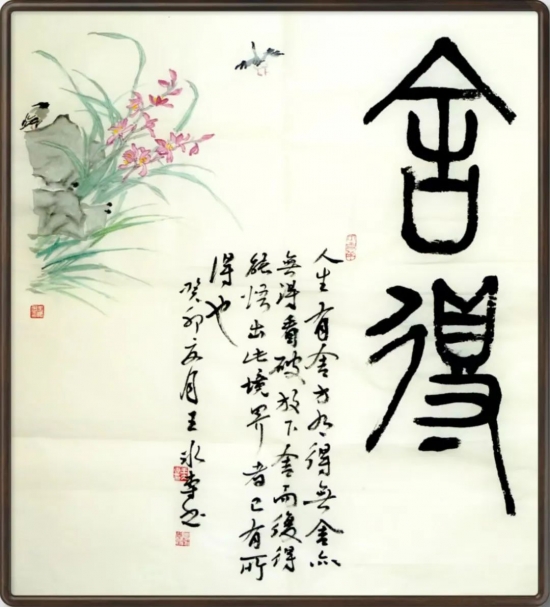 舍得
人生有舍方有得无舍亦
無得看破放下舍而後得
能悟出此境界者已有所
得也
癸卯 月王冰 书